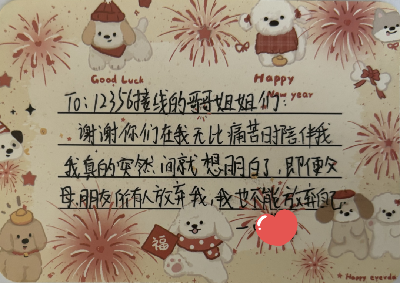 Good Luck
Happy
New year
To:12356接线的哥哥姐姐们:
谢谢你们在我无比痛苦时陪伴我
我真的突然间就想明白了,即便父
母朋友所有人放弃我,我也不能放弃自己
福
* Happy everyday